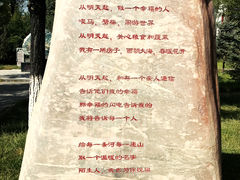 从明天起，做一个幸福的人
喂马，劈柴，周游世界
从明天起，关心粮食和蔬菜
我有一所房子，面朝大海，春暖花开
从明天起，和每一个亲人通信
告诉他们我的幸福
那幸福的闪电告诉我的
我将告诉每一个人
给每一条河每一座山
取一个温暖的名字
陌生人，我也为你祝福